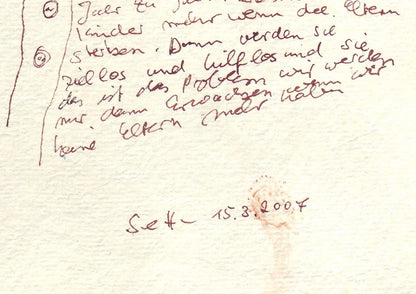 Jahr zu Jahr
Kinder mehr wenn die Eltern
sterben. Dann werden sie
ziellos und hilflos und sie
das ist das Problem wir werden
nur dann Erwachsen wenn wir
keine Eltern mehr haben
Sett 15.3.2007